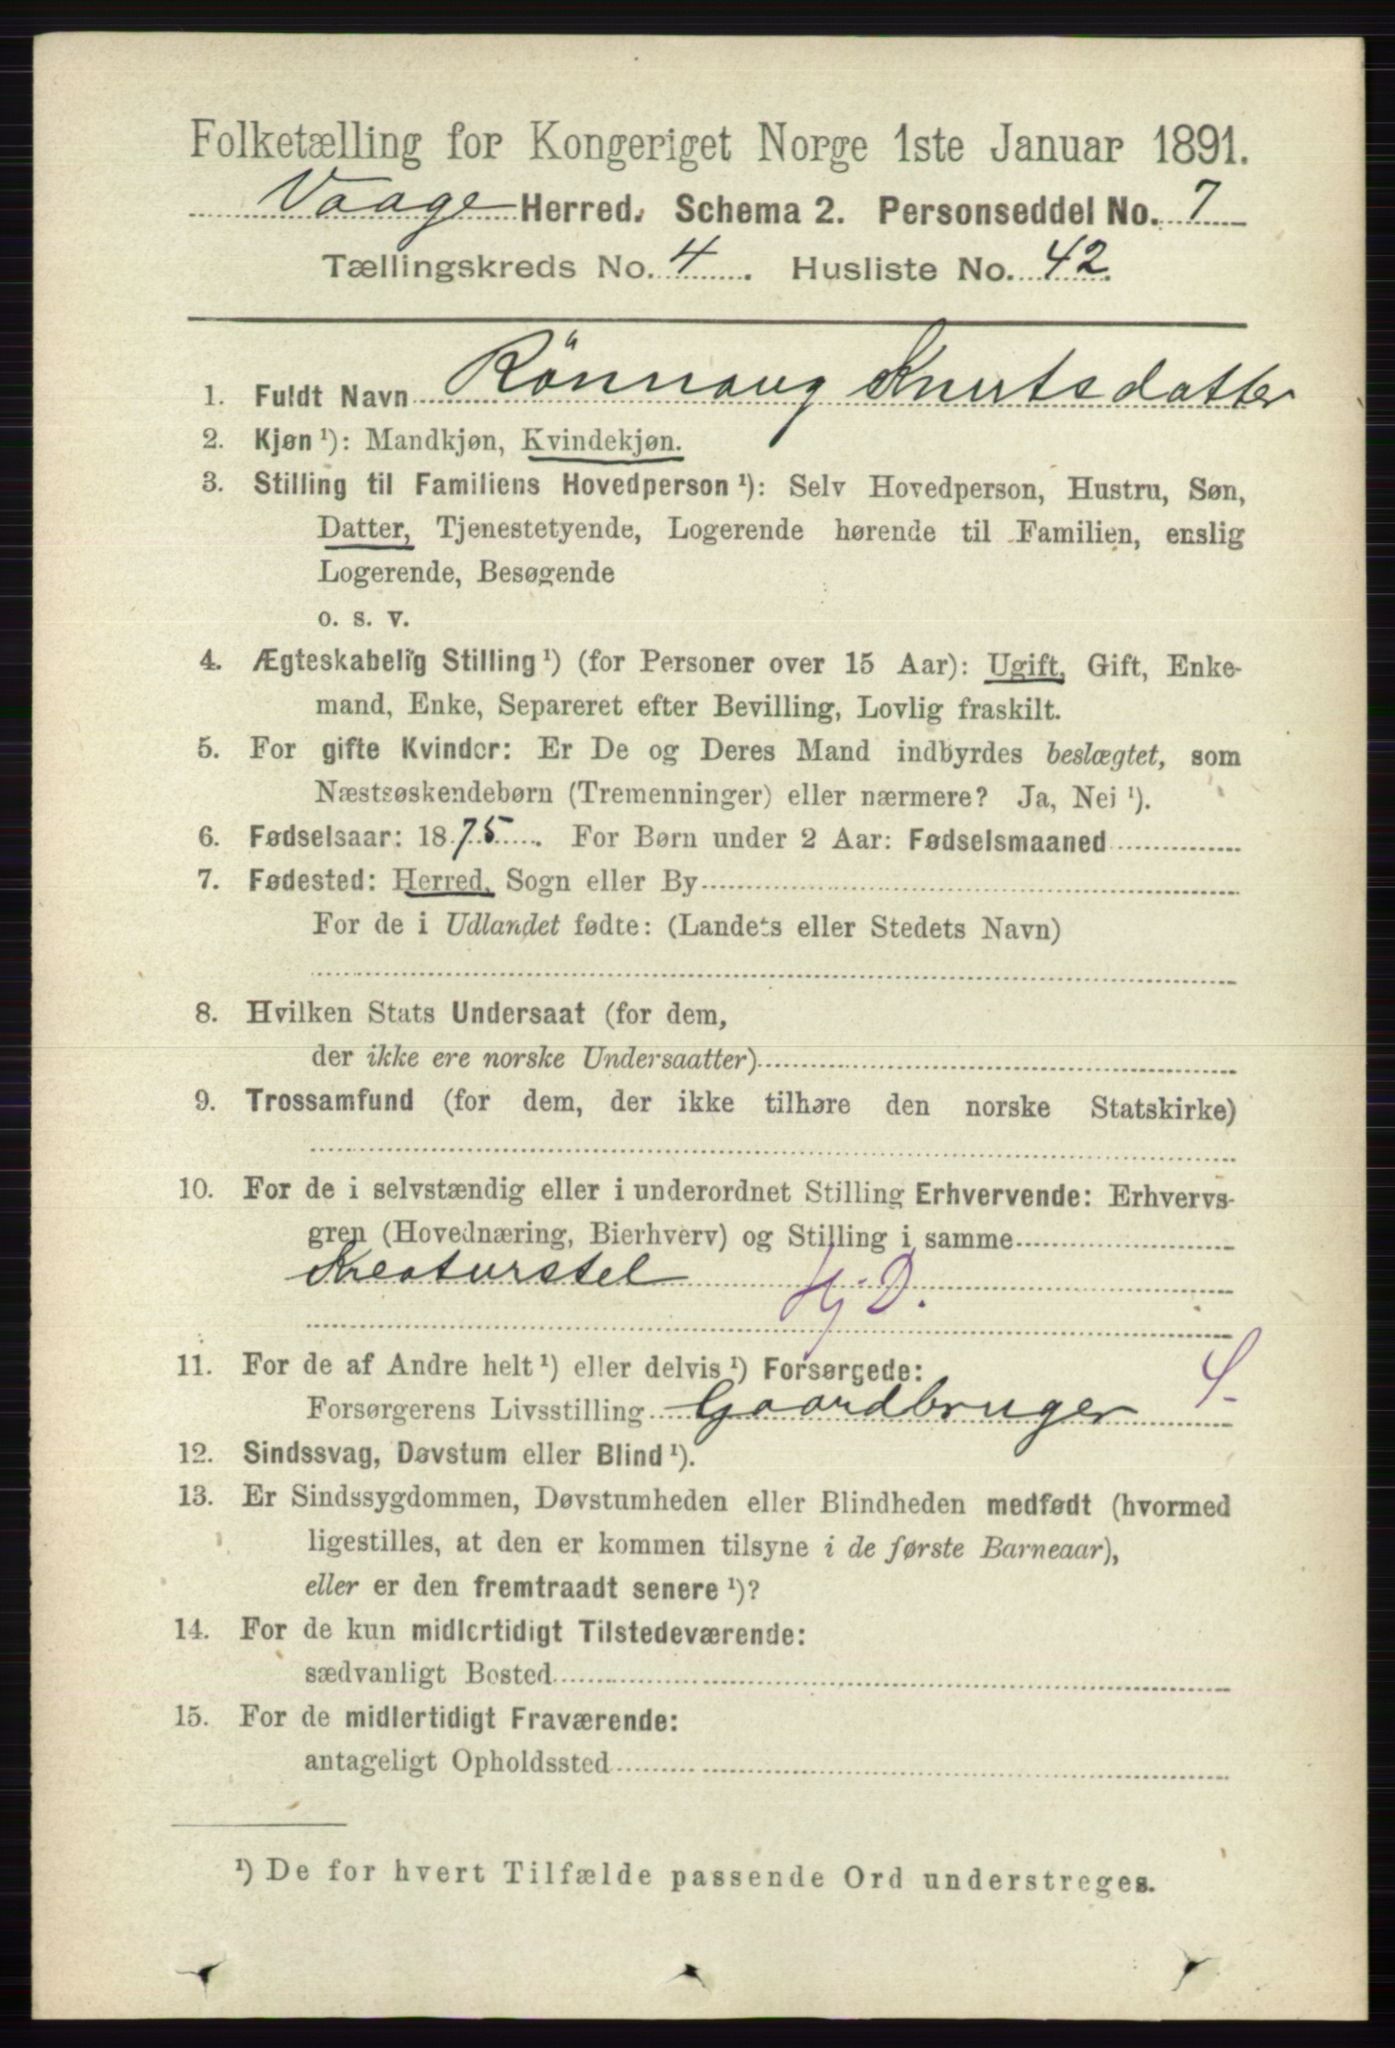 Folketælling for Kongeriget Norge 1ste Januar 1891.
Vaage Herred. Schema 2. Personseddel No. 7
Tællingskreds No. 4. Husliste No. 42.
1. Fuldt Navn Rönnoug Knutsdatter
2. Kjøn ¹): Mandkjøn, Kvindekjøn.
3. Stilling til Familiens Hovedperson ¹): Selv Hovedperson, Hustru, Søn,
Datter, Tjenestetyende, Logerende hørende til Familien, enslig
Logerende, Besøgende
o. s. v.
4. Ægteskabelig Stilling ¹) (for Personer over 15 Aar): Ugift, Gift, Enke-
mand, Enke, Separeret efter Bevilling, Lovlig fraskilt.
5. For gifte Kvinder: Er De og Deres Mand indbyrdes beslægtet, som
Næstsøskendebørn (Tremenninger) eller nærmere? Ja, Nei ¹).
6. Fødselsaar: 1875. For Børn under 2 Aar: Fødselsmaaned
7. Fødested: Herred, Sogn eller By
For de i Udlandet fødte: (Landets eller Stedets Navn)
8. Hvilken Stats Undersaat (for dem,
der ikke ere norske Undersaatter)
9. Trossamfund (for dem, der ikke tilhøre den norske Statskirke)
10. For de i selvstændig eller i underordnet Stilling Erhvervende: Erhvervs-
gren (Hovednæring, Bierhverv) og Stilling i samme
Kreaturstel Hj. D.
11. For de af Andre helt ¹) eller delvis ¹) Forsørgede:
Forsørgerens Livsstilling Gaardbruger
12. Sindssvag, Døvstum eller Blind ¹).
13. Er Sindssygdommen, Døvstumheden eller Blindheden medfødt (hvormed
ligestilles, at den er kommen tilsyne i de første Barneaar),
eller er den fremtraadt senere ¹)?
14. For de kun midlertidigt Tilstedeværende:
sædvanligt Bosted
15. For de midlertidigt Fraværende:
antageligt Opholdssted
¹) De for hvert Tilfælde passende Ord understreges.